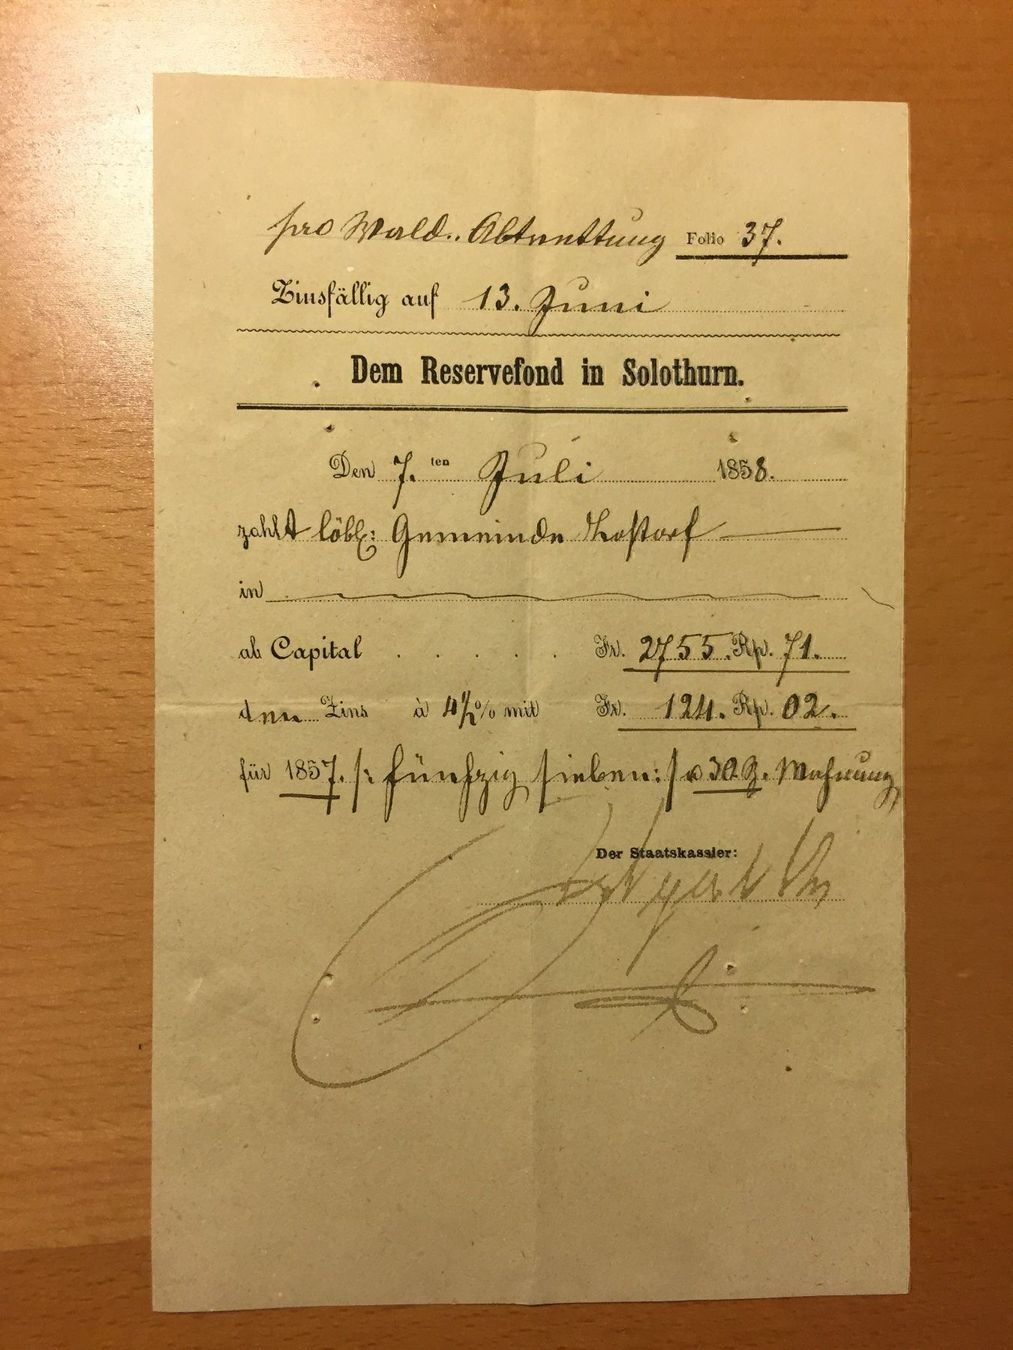 pro Wald.. Abtrettung Folio 37.
Zinsfällig auf 13. Juni
Dem Reservefond in Solothurn.
Den 7. ten Juli 1858.
zahlt löbl: Gemeinde Lostorf
in
ab Capital . . . . . Fr. 2755. Rp. 71.
den Zins à 4½% mit Fr. 124. Rp. 02.
für 1857. /: fünfzig sieben :/ Mahnung
Der Staatskassier: